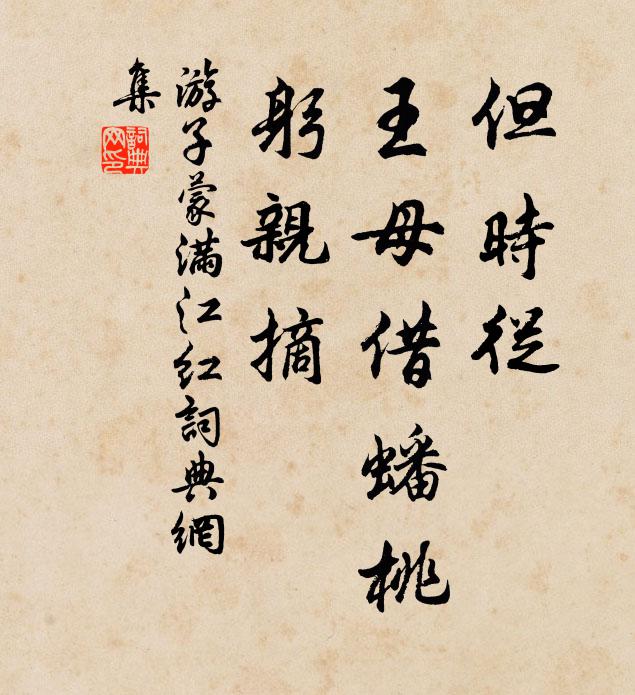 但時從
王母借蟠桃
躬親摘
游子蒙滿江红詞典網
集
詞典網印